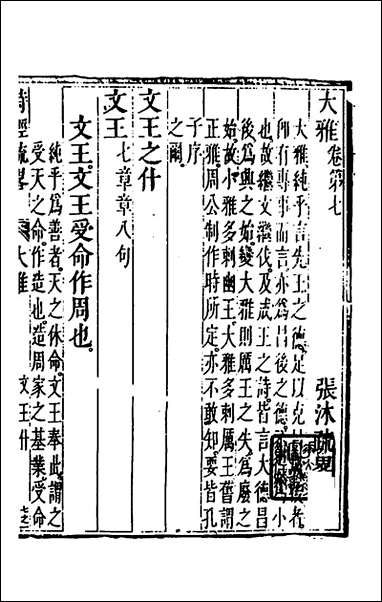 大雅卷第七 張沐疏畧
大雅純乎言先王之德足以克者
師有專事而言亦爲昌後之德小
也故繼文伐及武王之詩皆言大德昌
後爲興之始變大雅則厲王之失爲廢之
始故小雅多刺幽王大雅多刺厲王舊謂
正雅周公制作時所定亦不敢知要皆孔
子序
之爾
文王之什
文王 七章章八句
文王文王受命作周也。
純乎爲善者天之休命文王奉此謂之
受天之命作造也造周家之基業受命
詩經疏畧 大雅 文王什